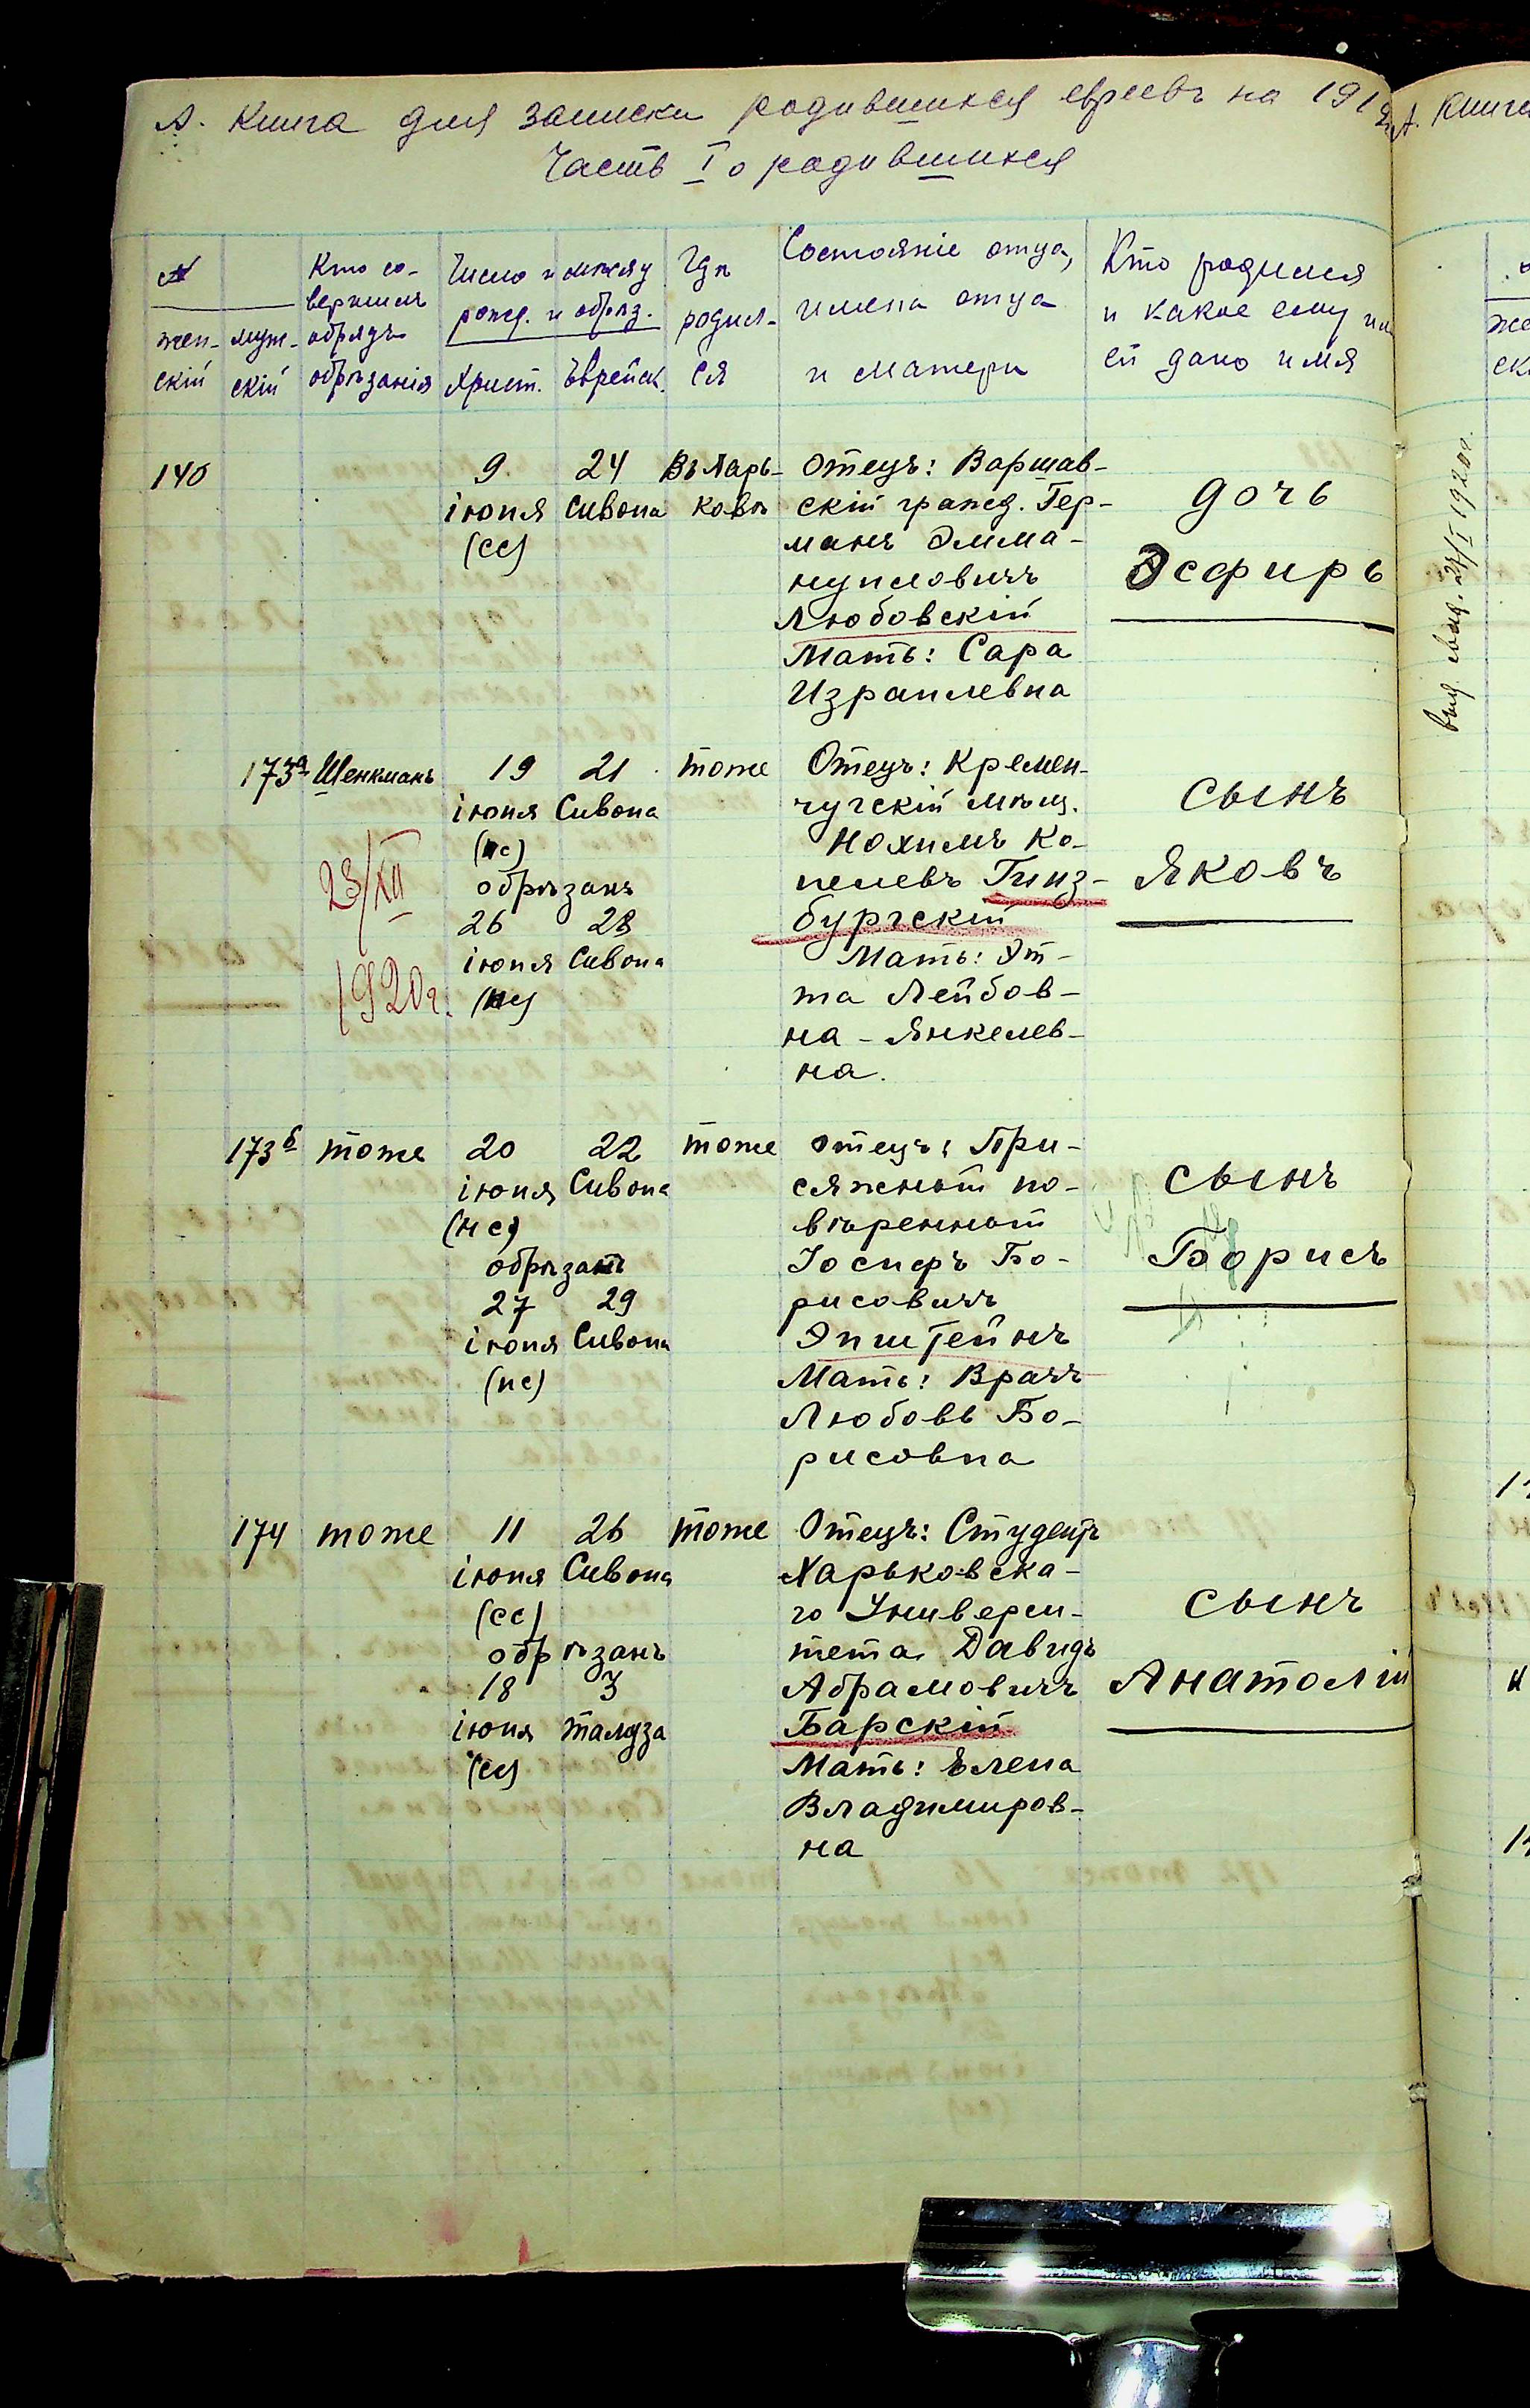 А. Книга для записки родившихся евреевъ на 191
Часть I о родившихся
№
жен-
скій
муж-
скій
Кто со-
вершилъ
обрядъ
обрѣзанія
Число и мѣсяц
рожд. и обрѣз.
Христ. Еврейск.
Гдѣ
родил-
ся
Состояніе отца,
имена отца
и матери
Кто родился
и какое ему или
ей дано имя
140
9. 24
іюня Сивона
(сс)
Въ Харь-
ковѣ
Отецъ: Варшав-
скій гражд. Гер-
манъ Эмма-
нуиловичъ
Любовскій
Мать: Сара
Израилевна
дочь
Эсфирь
173а Шенкманъ
19 21
іюня Сивона
(нс)
обрѣзанъ
26 28
іюня Сивона
(нс)
23/XII
1920г.
тоже
Отецъ: Кремен-
чугскій мѣщ.
Нохимъ Ко-
пелевъ Гинз-
бургскій
Мать: Эт-
та Лейбов-
на - Янкелев-
на.
сынъ
Яковъ
173б тоже
20 22
іюня Сивона
(нс)
обрѣзанъ
27 29
іюня Сивона
(нс)
тоже
Отецъ: При-
сяжный по-
вѣренный
Іосифъ Бо-
рисовичъ
Эпштейнъ
Мать: Врачъ
Любовь Бо-
рисовна
сынъ
Борисъ
174 тоже
11 26
іюня Сивона
(сс)
обрѣзанъ
18 3
іюня Талуза
(сс)
тоже
Отецъ: Студентъ
Харьковска-
го Универси-
тета Давидъ
Абрамовичъ
Барскій
Мать: Елена
Владимиров-
на
сынъ
Анатолій
А. Книга